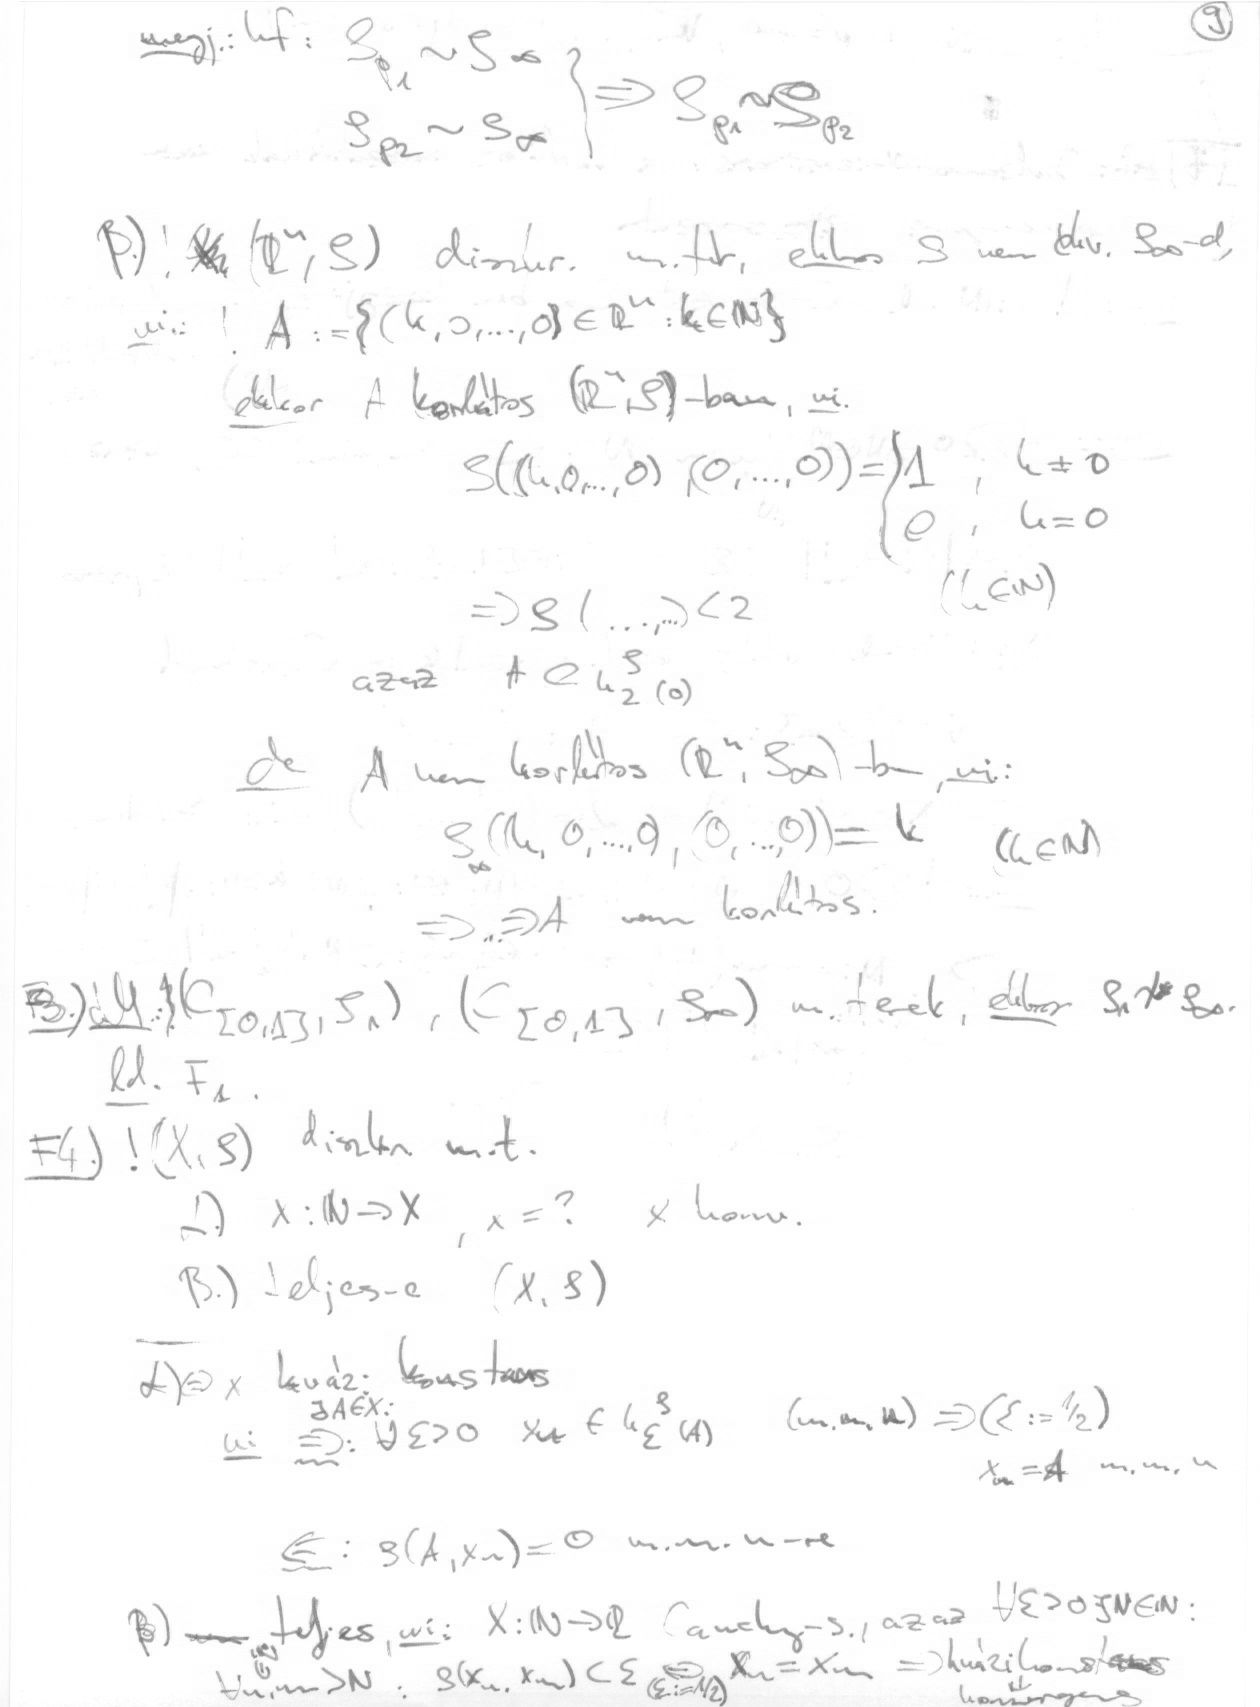 9
megj.: hf: ρ_{p_1} ~ ρ_∞
ρ_{p_2} ~ ρ_∞ } ⇒ ρ_{p_1} ~ ρ_{p_2}
β.) ! (ℝⁿ, ρ) diszkr. m. tér, ekkor ρ nem ekv. ρ_∞-
ui.: ! A := {(k, 0, ..., 0) ∈ ℝⁿ : k ∈ ℕ}
ekkor A korlátos (ℝⁿ, ρ)-ban, ui.
ρ((k, 0, ..., 0), (0, ..., 0)) = { 1 , k ≠ 0
0 , k = 0
(k ∈ ℕ)
⇒ ρ(..., ...) < 2
azaz A ⊂ k_2^ρ(0)
de A nem korlátos (ℝⁿ, ρ_∞)-ban, ui.:
ρ_∞((k, 0, ..., 0), (0, ..., 0)) = k (k ∈ ℕ)
⇒ ... ⇒ A nem korlátos.
F3.) áll. (C[0,1], ρ_1), (C[0,1], ρ_∞) m. terek, ekkor ρ_1 ≁ ρ_∞.
ld. F_1.
F4.) ! (X, ρ) diszkr m.t.
α) x : ℕ → X , x = ? x konv.
β.) teljes-e (X, ρ)
α) ⇔ x kvázi konstans
∃A∈X:
ui ⇒: ∀ε>0 x_n ∈ k_ε^ρ(A) (m.m. n) ⇒ (ε := 1/2)
x_n = A m.m. n
⇐: ρ(A, x_n) = 0 m.m. n-re
β) teljes, ui: X : ℕ → ℝ Cauchy-s., azaz ∀ε>0 ∃N∈ℕ:
∀n,m > N : ρ(x_n, x_m) < ε ⇔ (ε:=1/2) x_n = x_m ⇒ kvázikonstans
⇓
konvergens